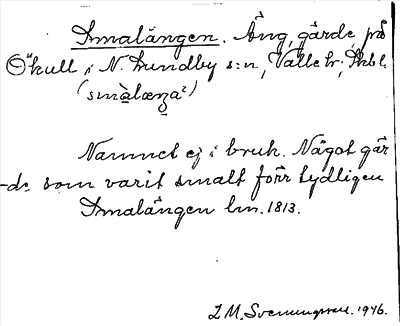 Smalängen. Äng, gärde, på
Ökull i N. Lundby s:n, Valle hr, Skbl.
(smàlæŋa²)
Namnet ej i bruk. Något gär-
de som varit smalt förr tydligen
Smalängen lm. 1813.
L M. Svenungsson. 1946.